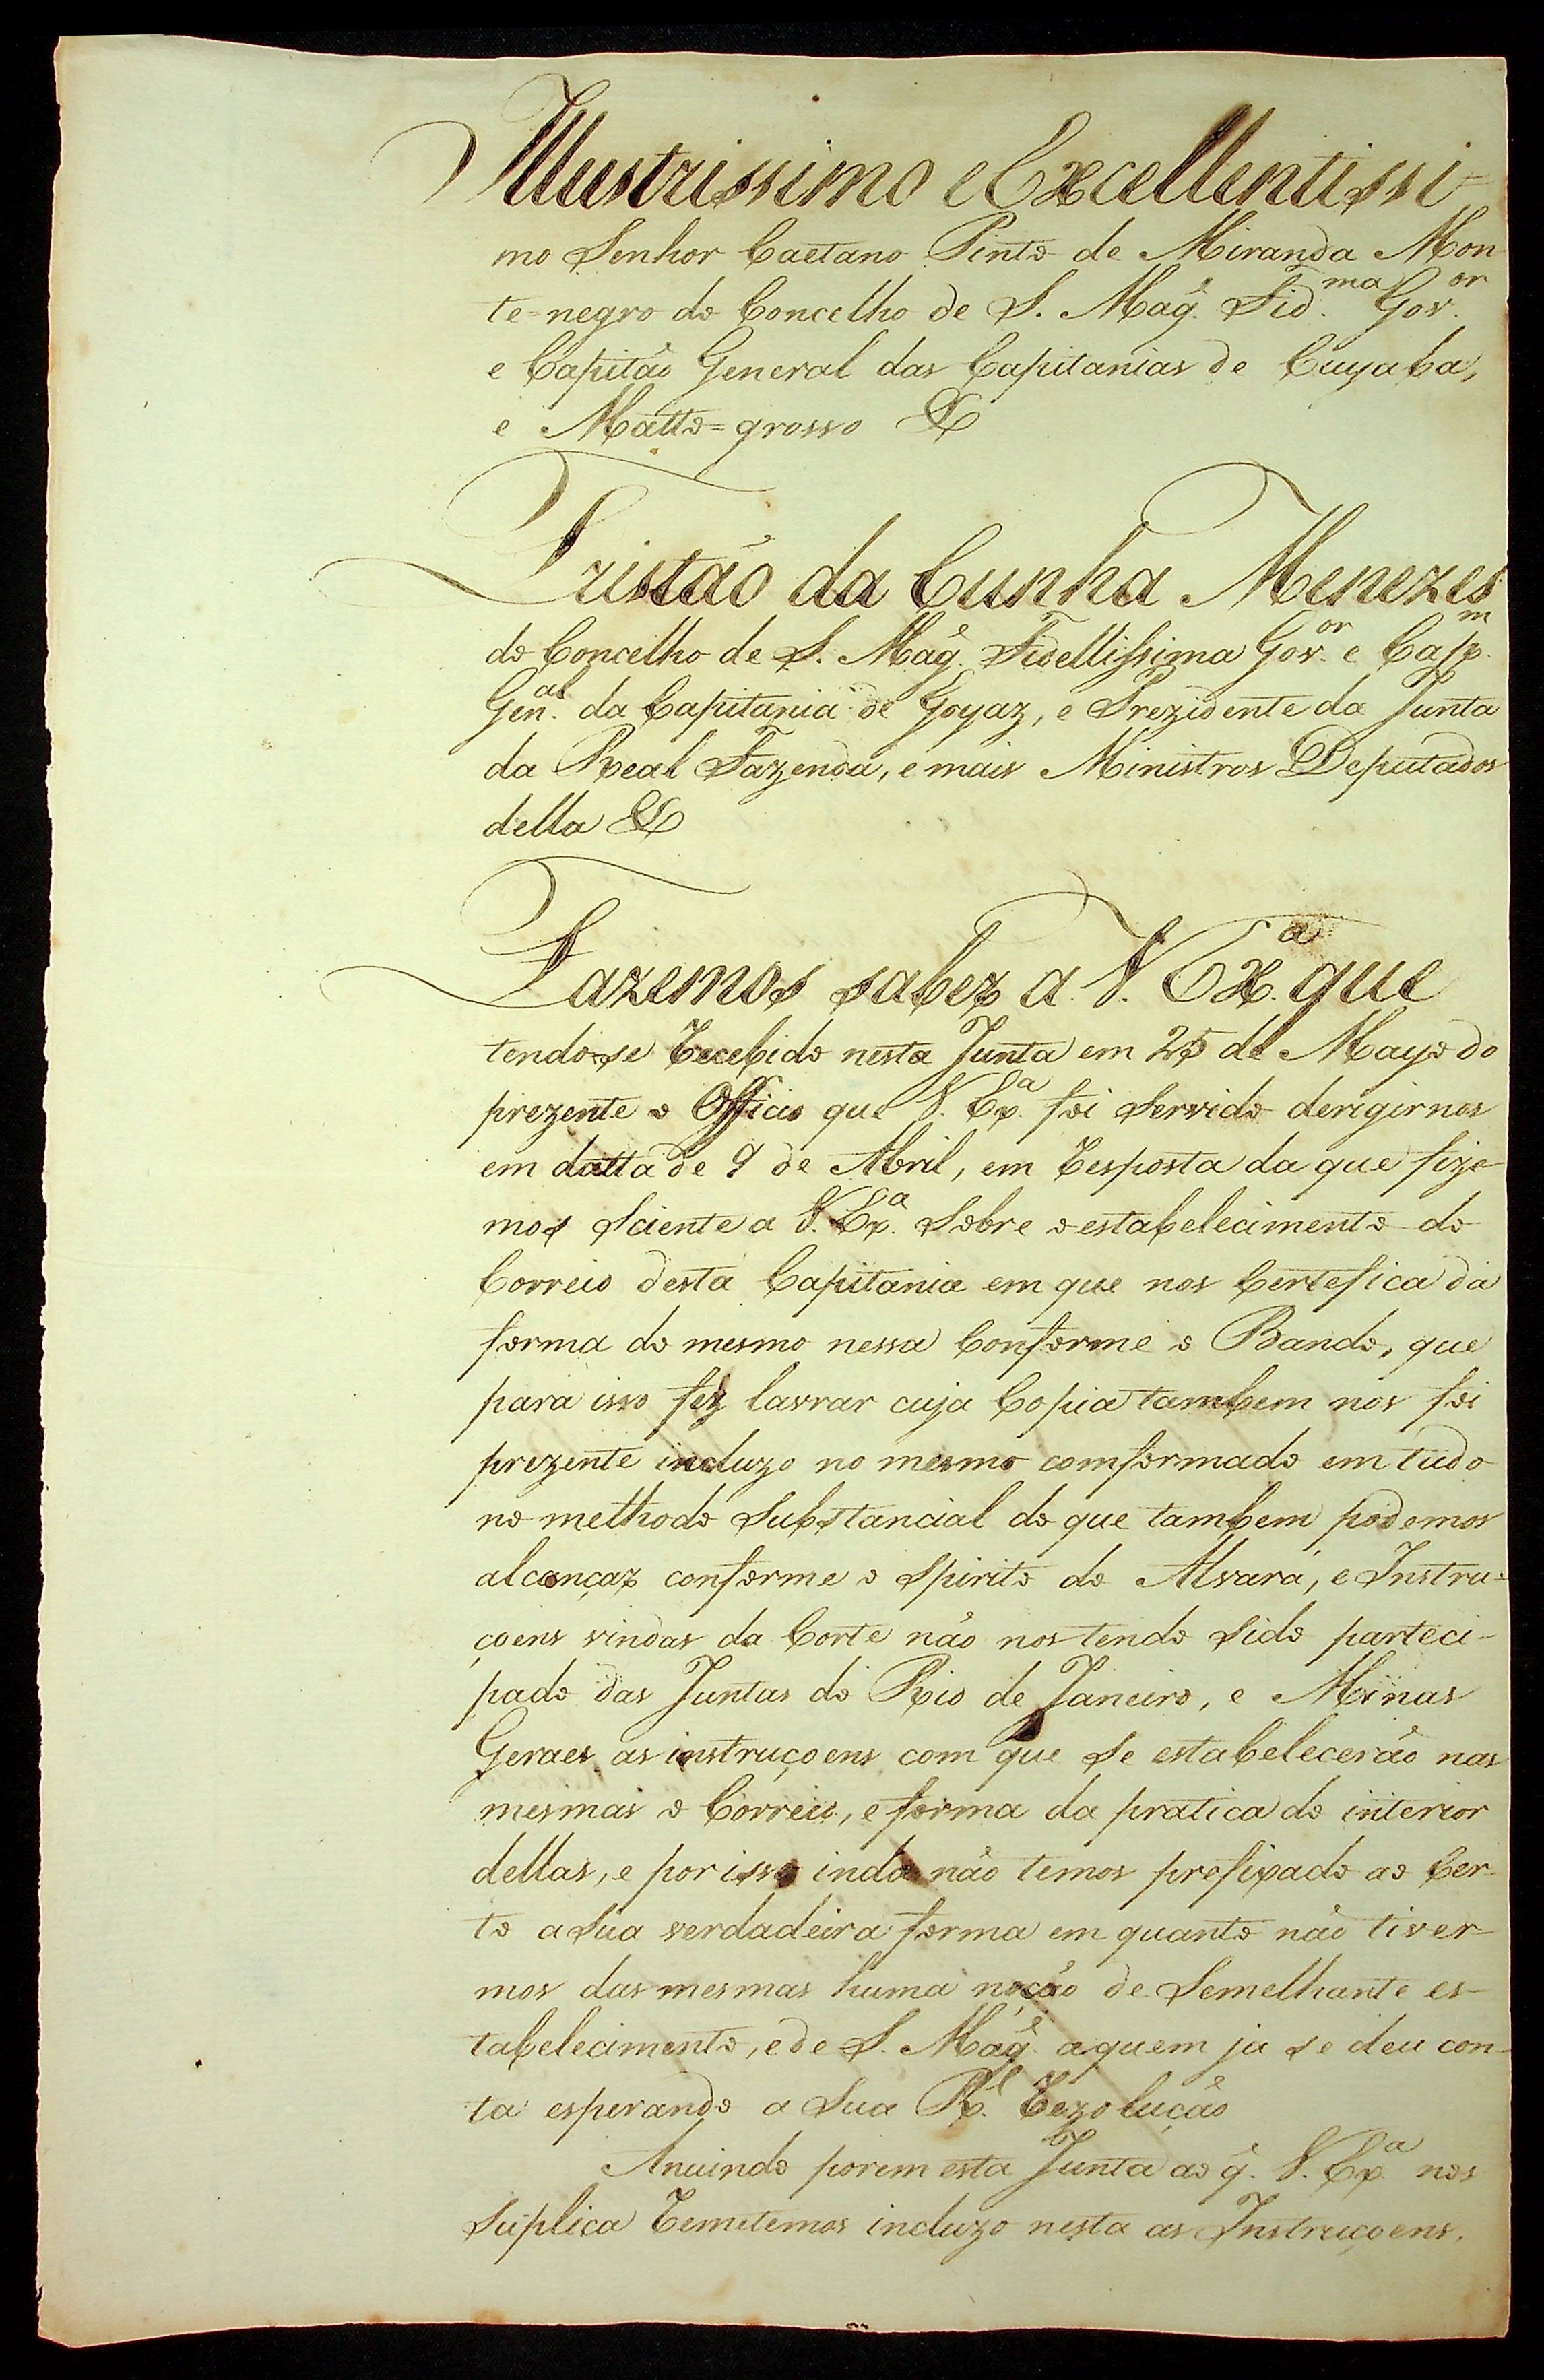 Illustrissimo e Excellentissi=
mo Senhor Caetano Pinto de Miranda Mon
te=negro do Concelho de S. Mag.e Fid.ma Gov.or
e Capitão General das Capitanias de Cuyaba,
e Matto=grosso &
Tristão da Cunha Menezes
do Concelho de S. Mag.e Fidellissima Gov.or e Cap.m
Gen.al da Capitania de Goyaz, e Prezidente da Junta
da Real Fazenda, e mais Ministros Deputados
della &
Fazemos saber a V. Ex.a que
tendo-se recebido nesta Junta em 25 de Mayo do
prezente o Officio que V. Ex.a foi Servido derigirnos
em datta de 9 de Abril, em resposta da que fize-
mos Sciente a V. Ex.a Sobre o estabelecimento do
Correio desta Capitania em que nos Certefica da
forma do mesmo nessa Conforme o Bando, que
para isso fez lavrar cuja Copia tambem nos foi
prezente incluzo no mesmo comformado em tudo
no methodo Substancial do que tambem podemos
alcançar conforme o Spirito do Alvará, e Instru=
çoens vindas da Corte não nos tendo Sido parteci-
pado das Juntas do Rio de Janeiro, e Minas
Geraes as instruçoens com que Se estabelecerão nas
mesmas o Correio, e forma da pratica do interior
dellas, e por isso inda não temos prefixado ao Cer-
to a Sua verdadeira forma em quanto não tiver-
mos das mesmas huma noção de Semelhante es-
tabelecimento, e de S. Mag.e a quem ja se deu con-
ta esperando a Sua R.l rezolução
Anuindo porem esta Junta ao q. V. Ex.a nos
Suplica remetemos incluzo nesta as Instruçoens,